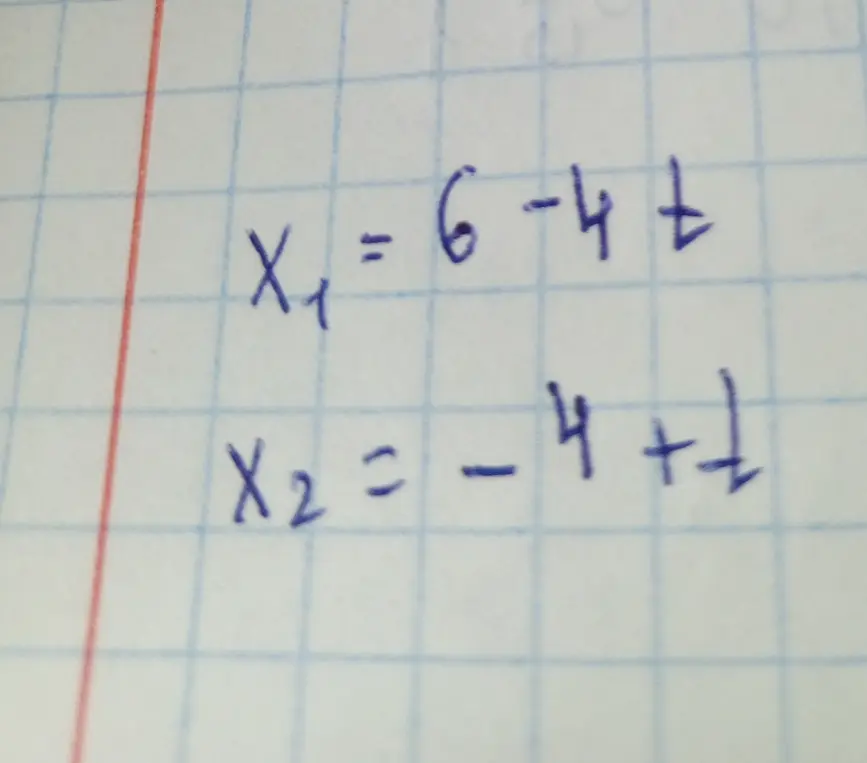 x₁ = 6 - 4t
x₂ = - 4 + t